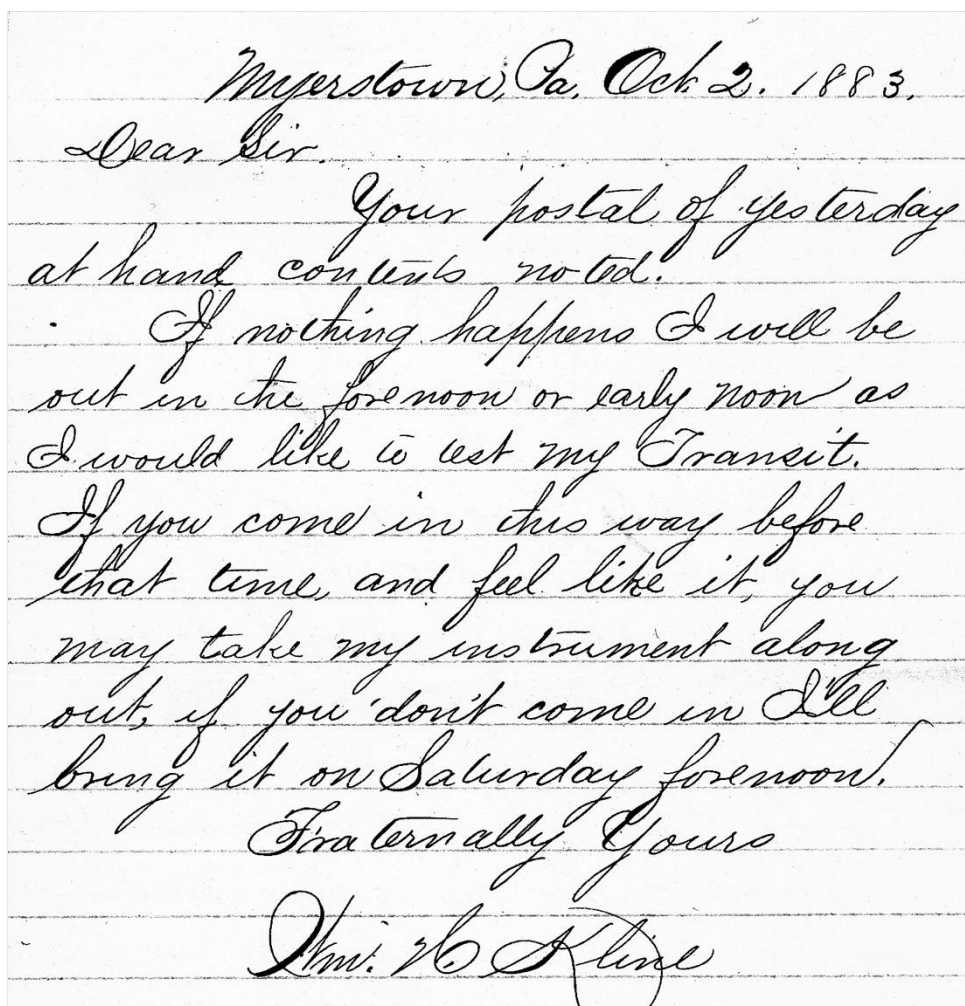 Myerstown, Pa. Oct. 2. 1883.
Dear Sir.
Your postal of yesterday
at hand contents noted.
If nothing happens I will be
out in the forenoon or early noon as
I would like to test my Transit.
If you come in this way before
that time, and feel like it, you
may take my instrument along
out, if you don't come in I'll
bring it on Saturday forenoon.
Fraternally Yours
Wm. H Kline